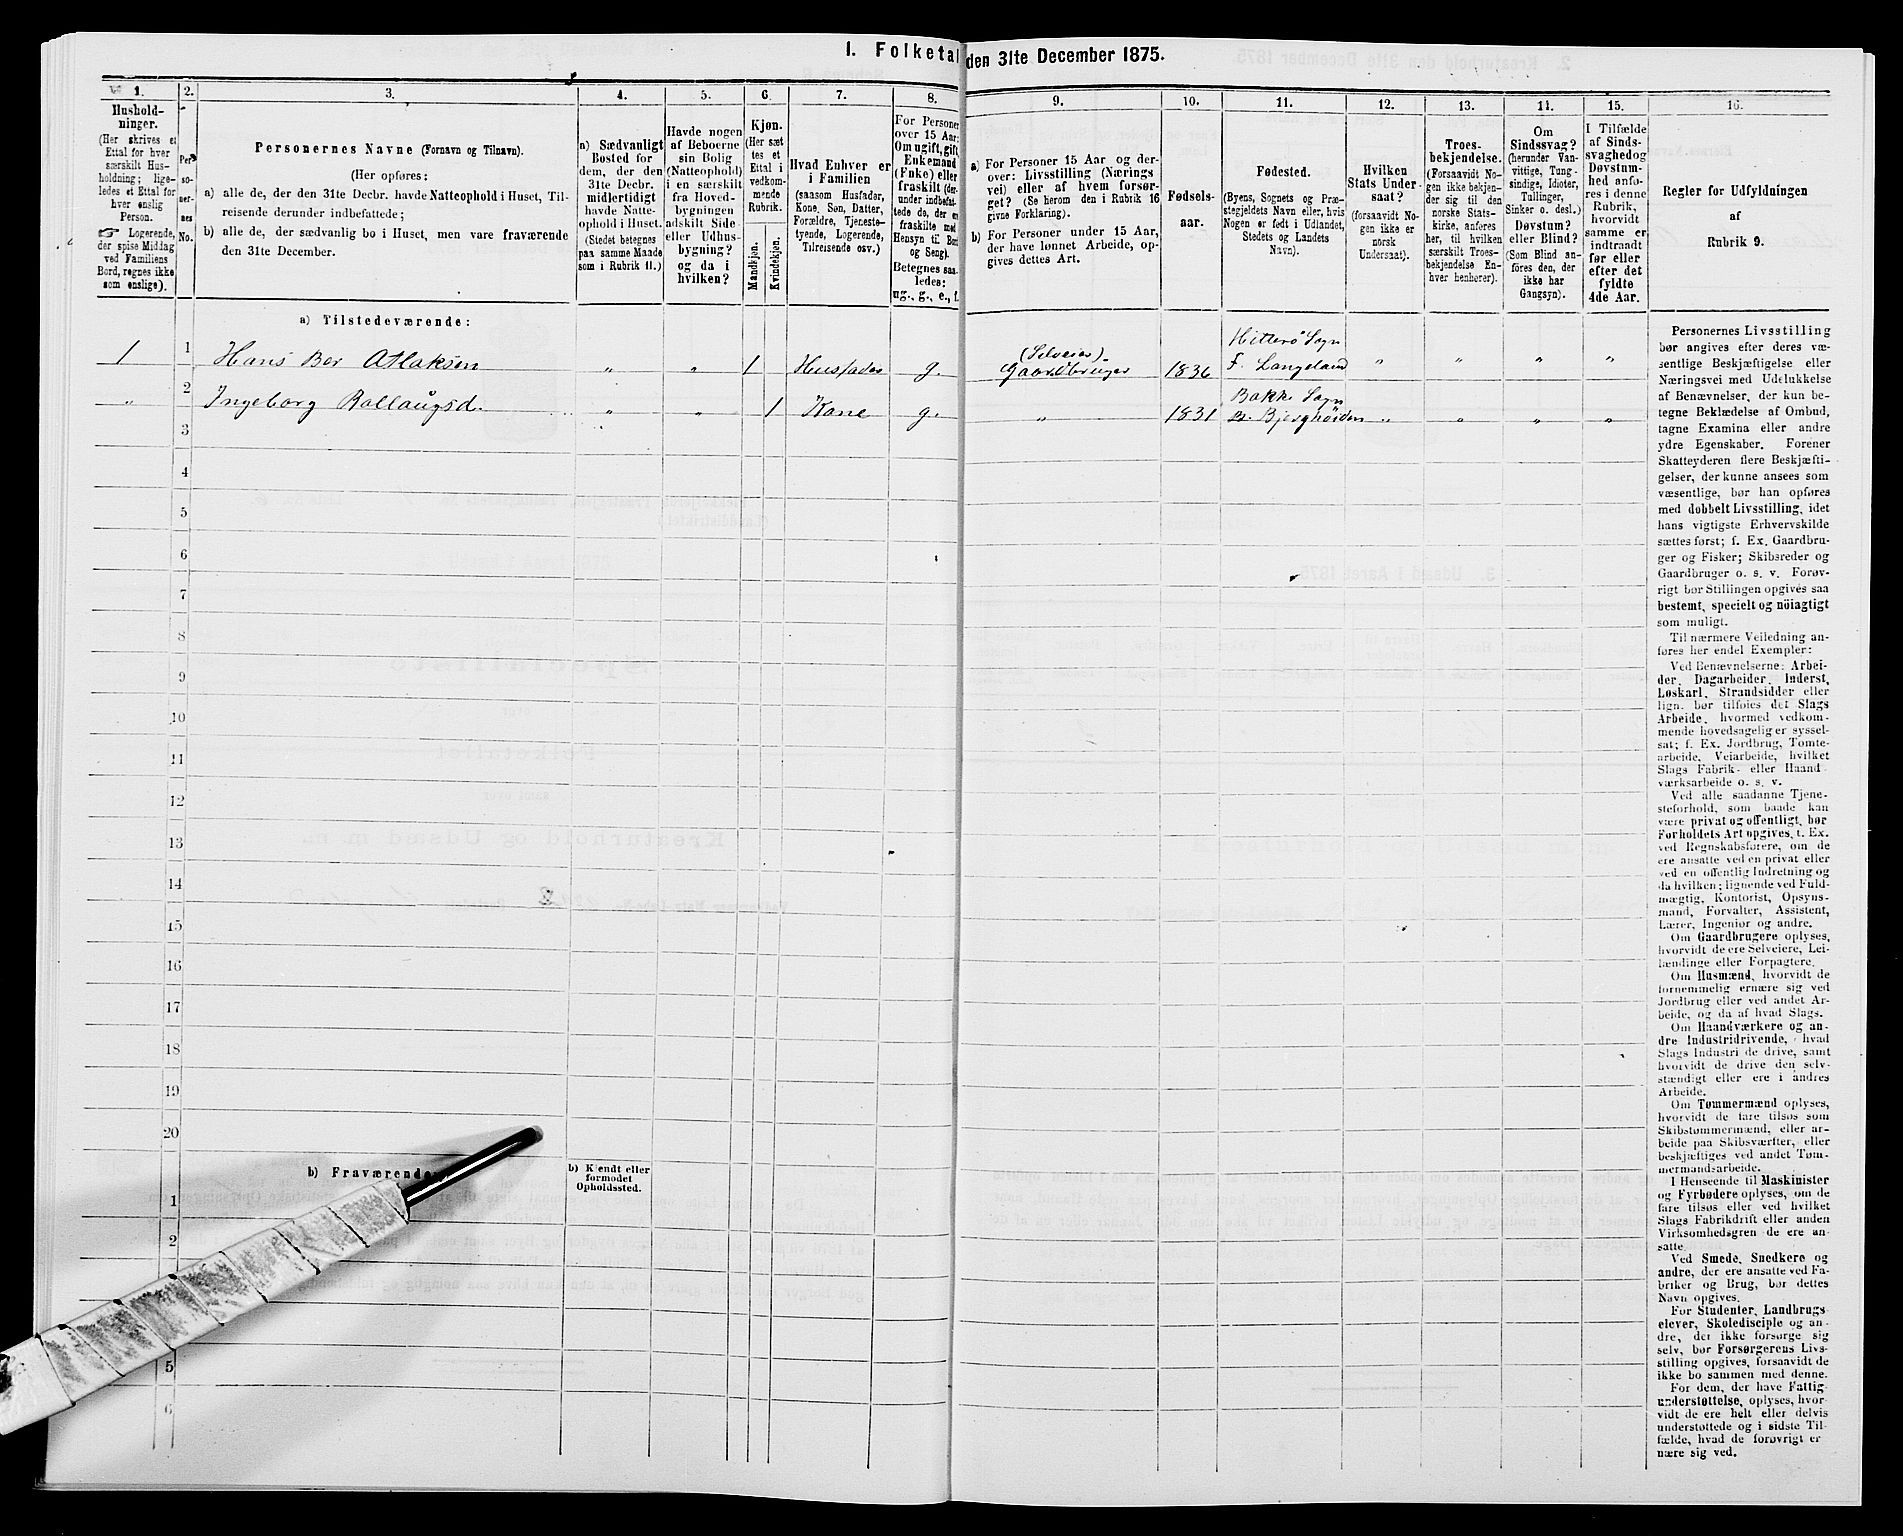 I. Folketal den 31te December 1875.
1.
Hushold-
ninger.
(Her skrives et
Ettal for hver
særskilt Hus-
holdning; lige-
ledes et Ettal for
hver enslig
Person.
Logerende,
der spise Middag
ved Familiens
Bord, regnes ikke
som enslige).
2.
Per-
so-
ner-
nes
No.
3.
Personernes Navne (Fornavn og Tilnavn).
(Her opføres:
a) alle de, der den 31te Decbr. havde Natteophold i Huset, Til-
reisende derunder indbefattede;
b) alle de, der sædvanlig bo i Huset, men vare fraværende
den 31te December.
4.
a) Sædvanligt
Bosted for
dem, der den
31te Decbr.
midlertidigt
havde Natte-
ophold i Huset.
(Stedet betegnes
paa samme Maade
som i Rubrik 11.)
5.
Havde nogen
af Beboerne
sin Bolig
(Natteophold)
i en særskilt
fra Hoved-
bygningen
adskilt Side-
eller Udhus-
bygning?
og da i
hvilken?
6.
Kjøn.
(Her sæt
tes et
Ettal i
vedkom-
mende
Rubrik.
Mandkjøn.
Kvindekjøn.
7.
Hvad Enhver er
i Familien
(saasom Husfader,
Kone, Søn, Datter,
Forældre, Tjeneste-
tyende, Logerende,
Tilreisende osv.)
8.
For Personer
over 15 Aar:
Om ugift, gift,
Enkemand
(Enke) eller
fraskilt (der-
under indbefat-
tede de, der er
fraskilte med
Hensyn til Bord
og Seng).
Betegnes saa-
ledes:
ug., g., e., f.
9.
a) For Personer 15 Aar og der-
over: Livsstilling (Nærings
vei) eller af hvem forsør-
get? (Se herom den i Rubrik 16
givne Forklaring).
b) For Personer under 15 Aar,
der have lønnet Arbeide, op-
gives dettes Art.
10.
Fødsels-
aar.
11.
Fødested.
(Byens, Sognets og Præ-
stegjeldets Navn eller, hvis
Nogen er født i Udlandet,
Stedets og Landets
Navn).
12.
Hvilken
Stats Under-
saat?
(forsaavidt No-
gen ikke er
norsk
Undersaat).
13.
Troes-
bekjendelse.
(Forsaavidt No-
gen ikke bekjen-
der sig til den
norske Stats-
kirke, anføres
her, til hvilken
særskilt Troes-
bekjendelse En-
hver henhører).
14.
Om
Sindssvag?
(herunder Van-
vittige, Tung-
sindige, Idioter,
Tullinger,
Sinker o. desl.)
Døvstum?
eller Blind?
(Som Blind an-
føres den, der
ikke har
Gangsyn).
15.
I Tilfælde
af Sinds-
svaghed og
Døvstum-
hed anfø-
res i denne
Rubrik,
hvorvidt
samme er
indtraadt
før eller
efter det
fyldte
4de Aar.
16.
Regler for Udfyldningen
af
Rubrik 9.
a) Tilstedeværende:
1 1 Hans Ber Atlaksen " " 1 Husfader g. (Selveier) Gaardbruger 1836 Hitterø Sogn F. Langeland " " " "
" 2 Ingeborg Rallaugsd. " " 1 Kone g. " 1831 Bakke Sogn Bjerghöiden " " " "
3
4
5
6
7
8
9
10
11
12
13
14
15
16
17
18
19
20
b) Fraværende
b) Kjendt eller
formodet
Opholdssted.
1
2
5
6
Personernes Livsstilling
bør angives efter deres væ-
sentlige Beskjæftigelse eller
Næringsvei med Udelukkelse
af Benævnelser, der kun be-
tegne Beklædelse af Ombud,
tagne Examina eller andre
ydre Egenskaber. Forener
Skatteyderen flere Beskjæfti-
gelser, der kunne ansees som
væsentlige, bør han opføres
med dobbelt Livsstilling, idet
hans vigtigste Erhvervskilde
sættes først; f. Ex. Gaardbru-
ger og Fisker; Skibsreder og
Gaardbruger o. s. v. Forøv-
rigt bør Stillingen opgives saa
bestemt, specielt og nöiagtigt
som muligt.
Til nærmere Veiledning an-
føres her endel Exempler:
Ved Benævnelserne: Arbei-
der, Dagarbeider, Inderst,
Løskarl, Strandsidder eller
lign. bør tilføies det Slags
Arbeide, hvormed vedkom-
mende hovedsagelig er syssel-
sat; f. Ex. Jordbrug, Tomte-
arbeide, Veiarbeide, hvilket
Slags Fabrik- eller Haand-
værksarbeide o. s. v.
Ved alle saadanne Tjene-
steforhold, som baade kan
være privat og offentligt, bør
Forholdets Art opgives, t. Ex.
ved Regnskabsførere, om de
ere ansatte ved en privat eller
ved en offentlig Indretning og
da hvilken; lignende ved Fuld-
mægtig, Kontorist, Opsyns-
mand, Forvalter, Assistent,
Lærer, Ingeniør og andre.
Om Gaardbrugere oplyses,
hvorvidt de ere Selveiere, Lei-
lændinge eller Forpagtere.
Om Husmænd, hvorvidt de
fornemmelig ernære sig ved
Jordbrug eller ved andet Ar-
beide, og da af hvad Slags.
Om Haandværkere og an-
dre Industridrivende, hvad
Slags Industri de drive, samt
hvorvidt de drive den selv-
stændigt eller ere i andres
Arbeide.
Om Tømmermænd oplyses,
hvorvidt de fare tilsøs som
Skibstømmermænd, eller ar-
beide paa Skibsværfter, eller
beskjæftiges ved andet Tøm-
mermandsarbeide.
I Henseende til Maskinister
og Fyrbødere oplyses, om de
fare tilsøs eller ved hvilket
Slags Fabrikdrift eller anden
Virksomhedsgren de ere an-
satte.
Ved Smede, Snedkere og
andre, der ere ansatte ved Fa-
briker og Brug, bør dettes
Navn opgives.
For Studenter, Landbrugs-
elever, Skoledisciple og an-
dre, der ikke forsørge sig
selv, bør Forsørgerens Livs-
stilling opgives, forsaavidt de
ikke bo sammen med denne.
For dem, der have Fattig-
understøttelse, oplyses, hvor-
vidt de ere helt eller delvis
understøttede og i sidste Til-
fælde, hvad de forøvrigt er-
nære sig ved.